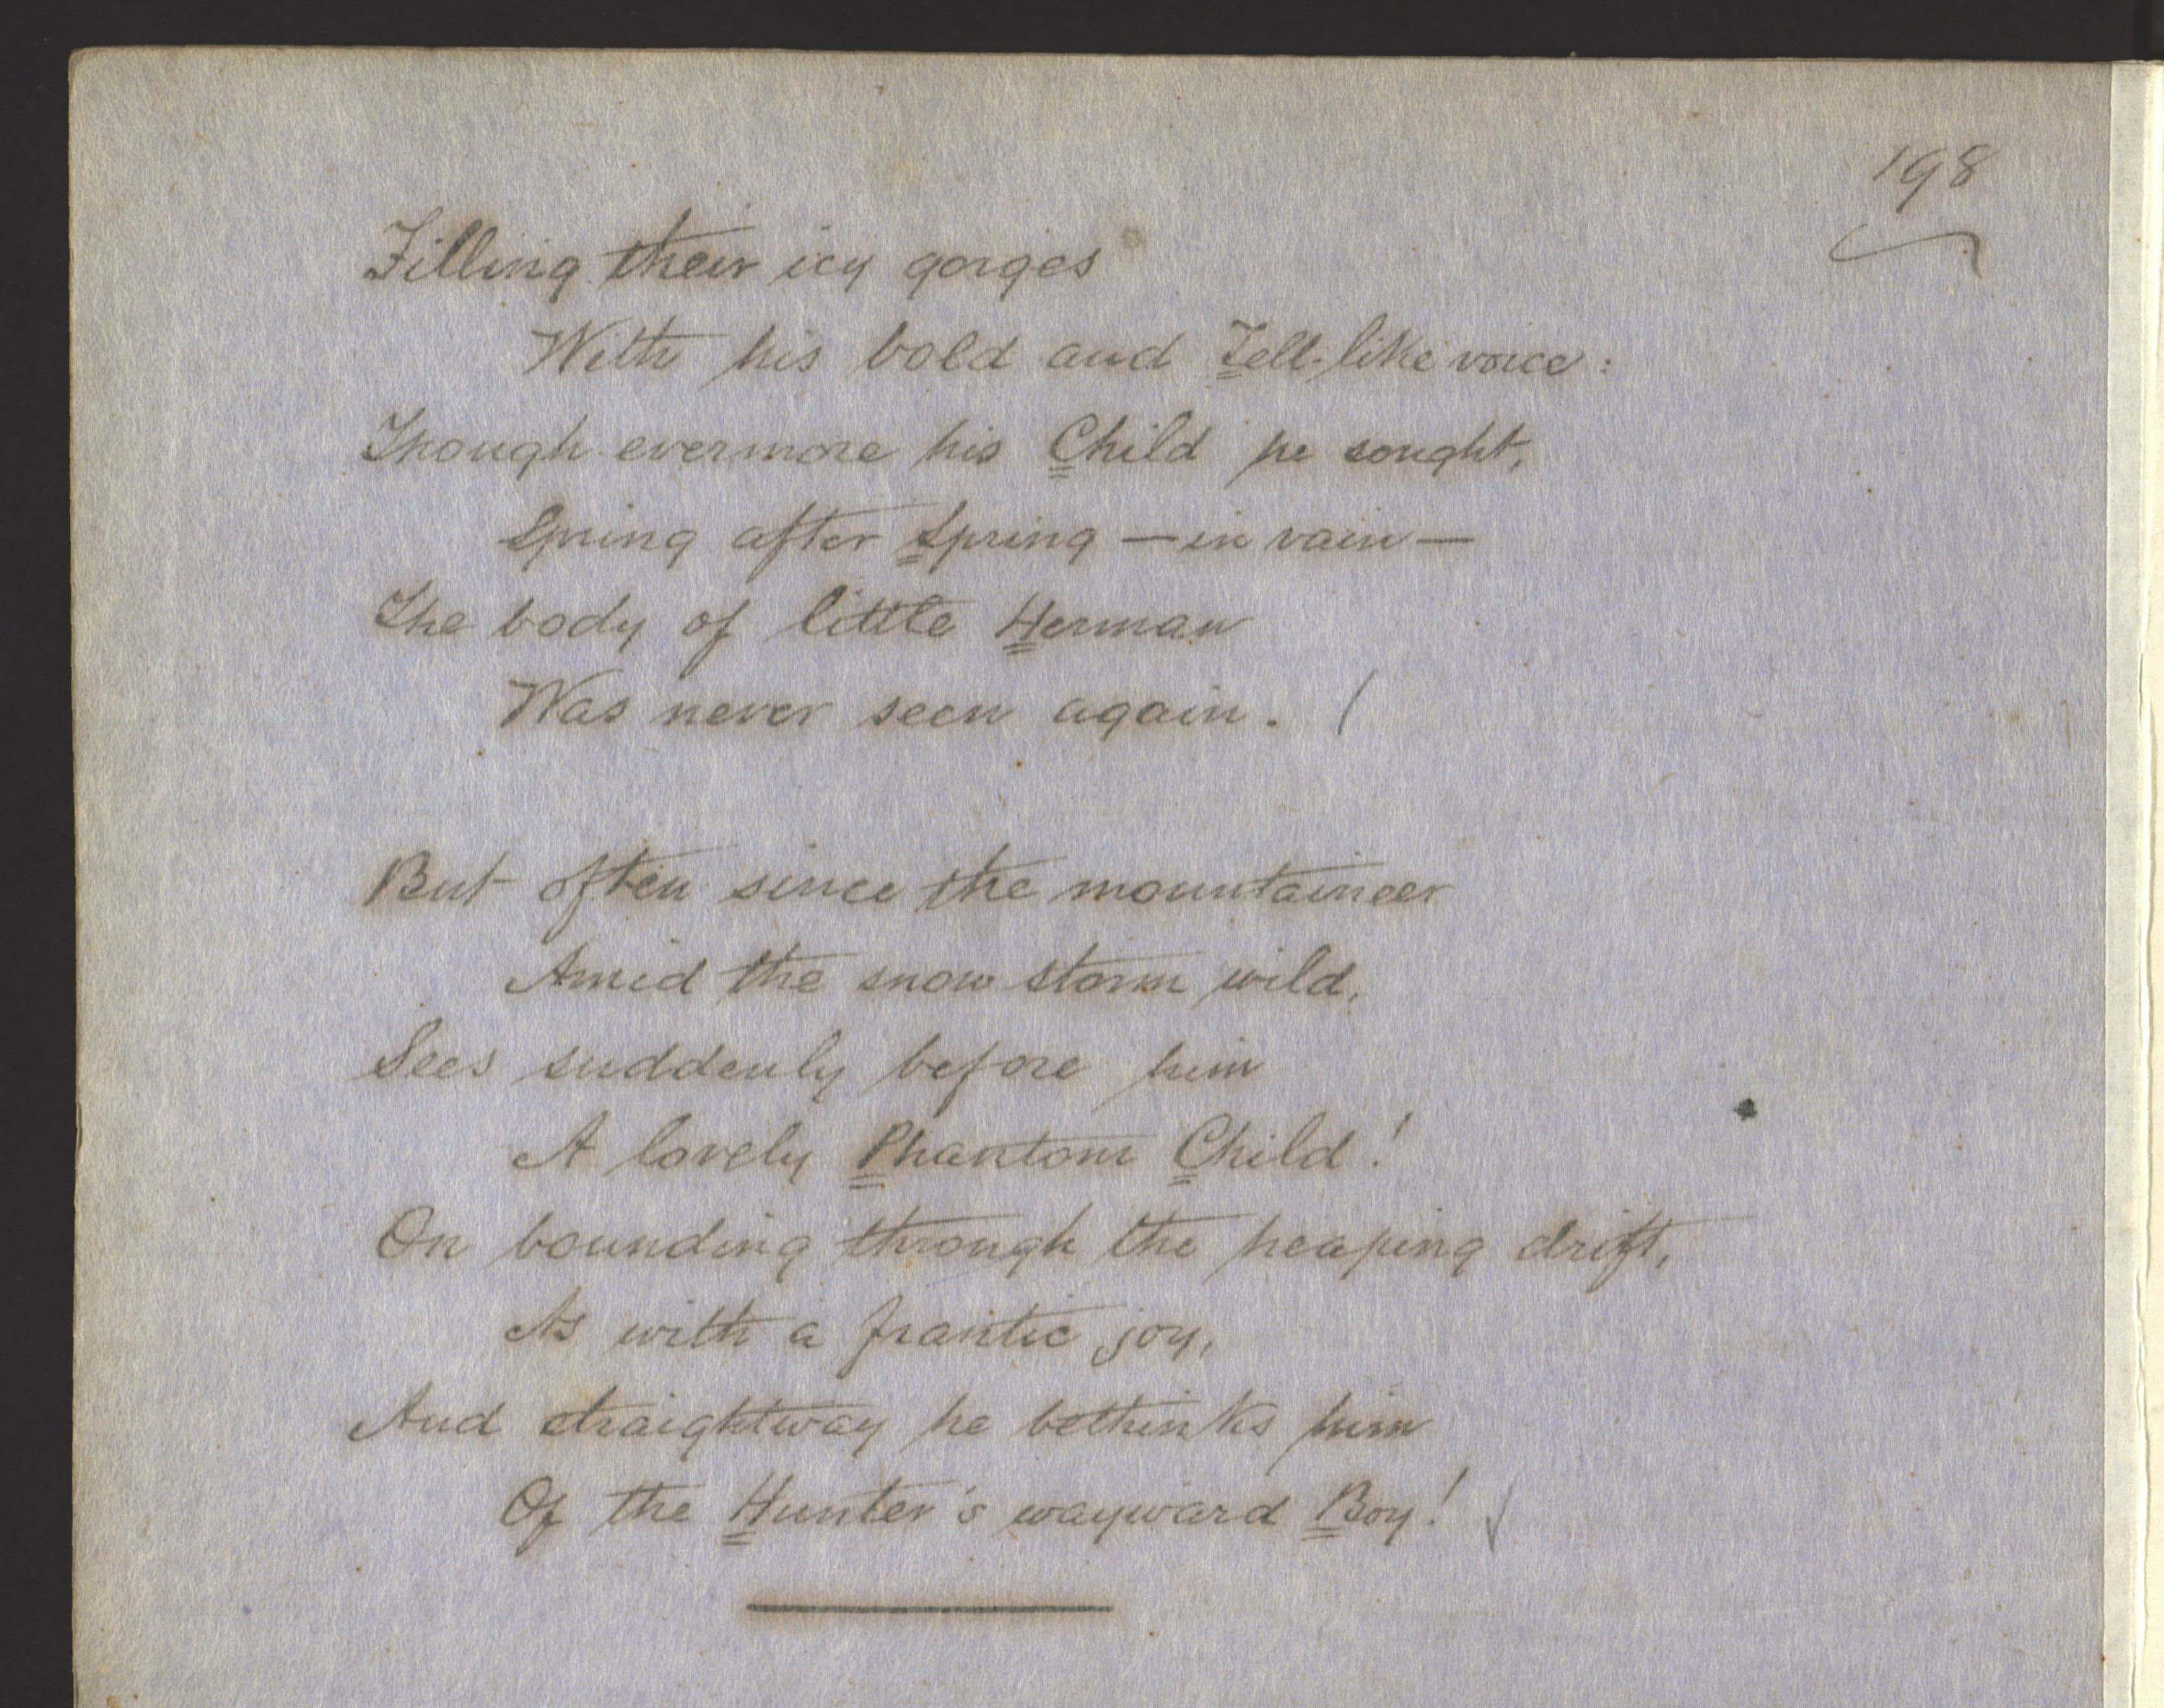 198
Filling their icy gorges
With his bold and Tell-like voice:
Though evermore his Child he sought,
Spring after Spring — in vain —
The body of little Herman
Was never seen again.
But often since the mountaineer
Amid the snow storm wild,
Sees suddenly before him
A lovely Phantom Child!
On bounding through the heaping drift,
As with a frantic joy,
And straightway he bethinks him
Of the Hunter's wayward Boy!